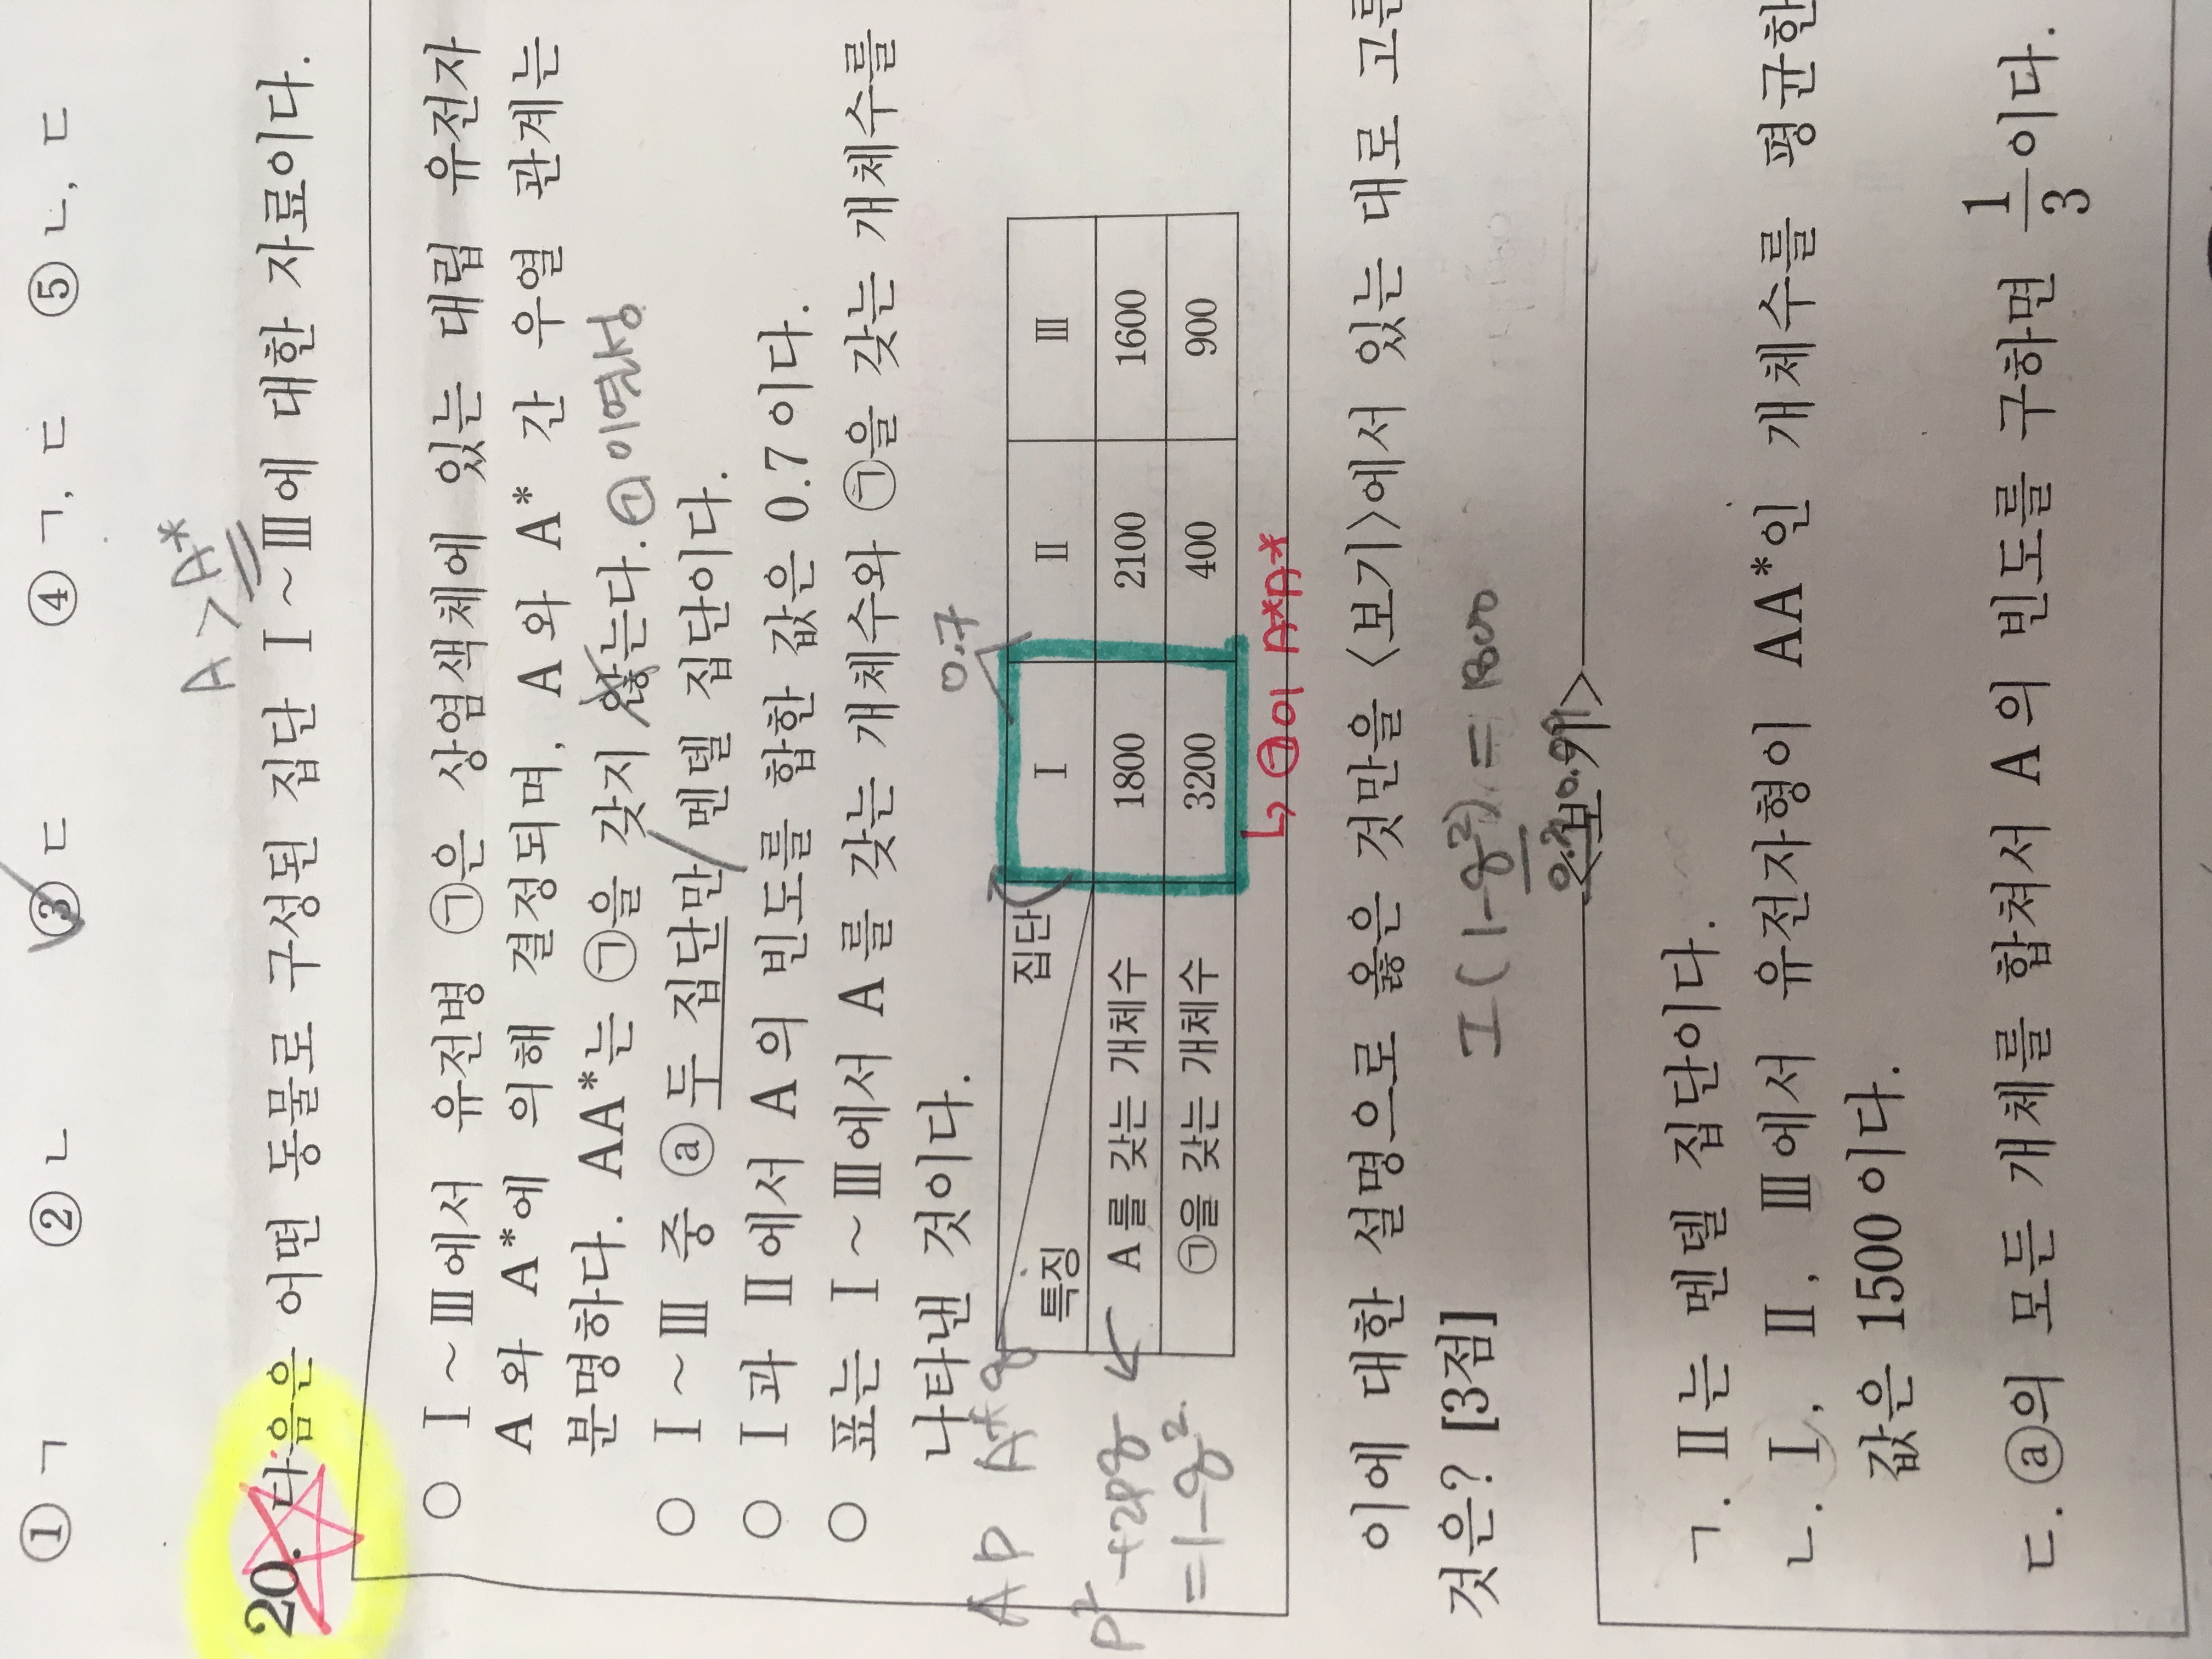 ① ㄱ ② ㄴ ③ ㄷ ④ ㄱ, ㄷ ⑤ ㄴ, ㄷ
A > A*
20. 다음은 어떤 동물로 구성된 집단 Ⅰ~Ⅲ에 대한 자료이다.
○ Ⅰ~Ⅲ에서 유전병 ㉠은 상염색체에 있는 대립 유전자
A와 A*에 의해 결정되며, A와 A* 간 우열 관계는
분명하다. AA*는 ㉠을 갖지 않는다. ㉠ 이 열성
○ Ⅰ~Ⅲ 중 ⓐ두 집단만 멘델 집단이다.
○ Ⅰ과 Ⅱ에서 A의 빈도를 합한 값은 0.7이다.
○ 표는 Ⅰ~Ⅲ에서 A를 갖는 개체수와 ㉠을 갖는 개체수를
나타낸 것이다.
0.7
특징 집단 Ⅰ Ⅱ Ⅲ
A를 갖는 개체수 1800 2100 1600
㉠을 갖는 개체수 3200 400 900
A P A* q
P² +2pq
= 1-q²
↳ ㉠이 A*A*
이에 대한 설명으로 옳은 것만을 <보기>에서 있는 대로 고른
것은? [3점]
Ⅰ (1-q²) = 1800
<보기>
ㄱ. Ⅱ는 멘델 집단이다.
ㄴ. Ⅰ, Ⅱ, Ⅲ에서 유전자형이 AA*인 개체수를 평균한
값은 1500이다.
ㄷ. ⓐ의 모든 개체를 합쳐서 A의 빈도를 구하면 1/3이다.